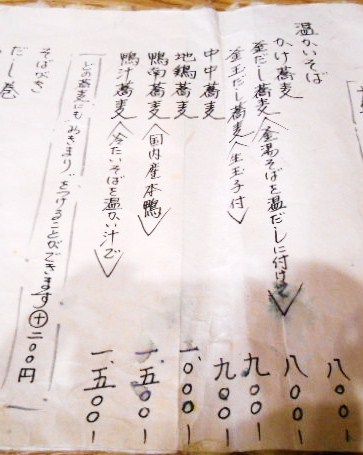 温かいそば
かけ蕎麦 八〇〇ー
釜だし蕎麦〈釜湯そばを温だしに付けて〉 八〇〇ー
釜玉だし蕎麦〈生玉子付〉 九〇〇ー
中中蕎麦 九〇〇ー
地鶏蕎麦 一、〇〇〇ー
鴨南蕎麦〈国内産本鴨〉 一、五〇〇ー
鴨汁蕎麦〈冷たいそばを温かい汁で〉 一、五〇〇ー
どの蕎麦にも"おきまり"をつけることができます⊕二〇〇円
そばがき
だし巻